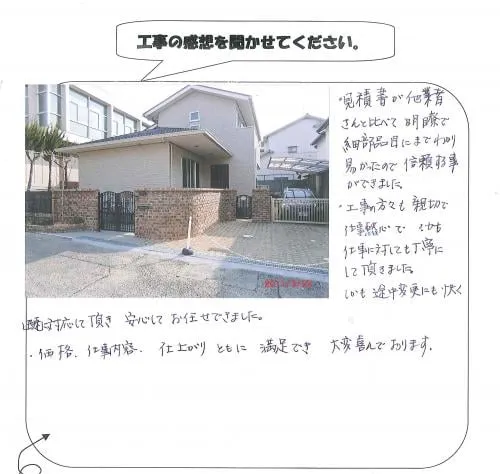 工事の感想を聞かせてください。
・見積書が他業者
さんと比べて明瞭で
細部品目にまでわかり
易かったので信頼する事
ができました
・工事の方々も親切で
仕事熱心で しかも
仕事に対しても丁寧に
して頂きました
しかも 途中変更にも快く
対応して頂き 安心して お任せできました。
・価格、仕事内容、仕上がり ともに 満足でき 大変喜んでおります。